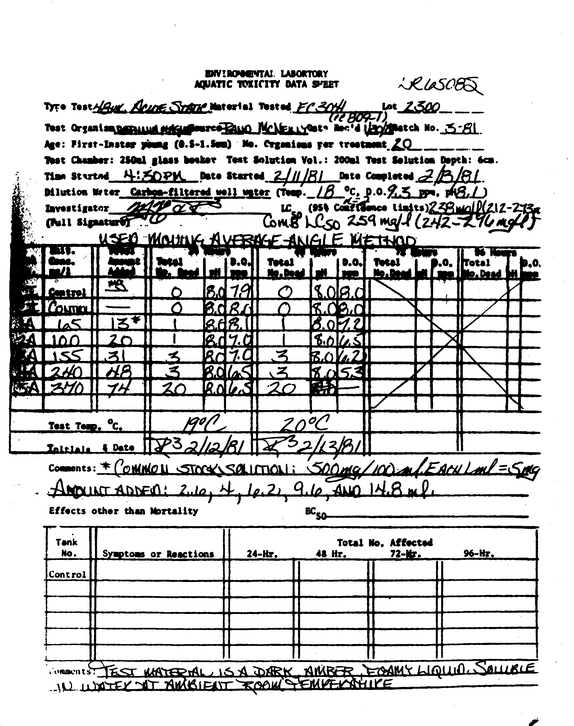 ENVIRONMENTAL LABORTORY
AQUATIC TOXICITY DATA SHEET
Type Test 48 Hr. Acute Static Material Tested FC 3041 Lot 2300
Test Organism Daphnia magna Source Rand McNelly Date Rec'd 1/30/81 Batch No. 3-81
Age: First-Instar young (0.5-1.5mm) No. Organisms Per treatment 20
Test Chamber: 250ml glass beaker Test Solution Vol.: 200ml Test Solution Depth: 6cm.
Time Started 4:30PM Date Started 2/11/81 Date Completed 2/13/81
Dilution Water Carbon-filtered well water (Temp. 18 °C, D.O. 9.3 ppm, pH 8.1)
Investigator LC50 (95% Confidence limits)
(Full Signature) Comb LC50 259 mg/l (242-276 mg/l)
USED MOVING AVERAGE-ANGLE METHOD
Total D.O. Total D.O. Total D.O. Total D.O.
No. Dead pH ppm No. Dead pH ppm No. Dead pH ppm No. Dead pH ppm
Control 0 8.0 7.9 0 8.0 8.0
Control — 0 8.0 8.0 0 8.0 8.0
1A 65 13* 1 8.0 8.1 1 8.0 7.2
2A 100 20 1 8.0 7.0 1 8.0 6.2
3A 155 31 3 8.0 7.0 3 8.0 6.2
4A 240 48 3 8.0 6.5 3 8.0 5.3
5A 370 74 20 8.0 6.5 20 —
Test Temp. °C. 19°C 20°C
Initials & Date 2/12/81 2/13/81
Comments: * COMMON STOCK SOLUTION: 500mg/100 ml. EACH 1ml = 5mg
AMOUNT ADDED: 2.6, 4, 6.2, 9.6, AND 14.8 ml.
Effects other than Mortality EC50
Tank Total No. Affected
No. Symptoms or Reactions 24-Hr. 48 Hr. 72-Hr. 96-Hr.
Control
Comments: TEST MATERIAL IS A DARK AMBER FOAMY LIQUID. SOLUBLE
IN WATER AT AMBIENT ROOM TEMPERATURE